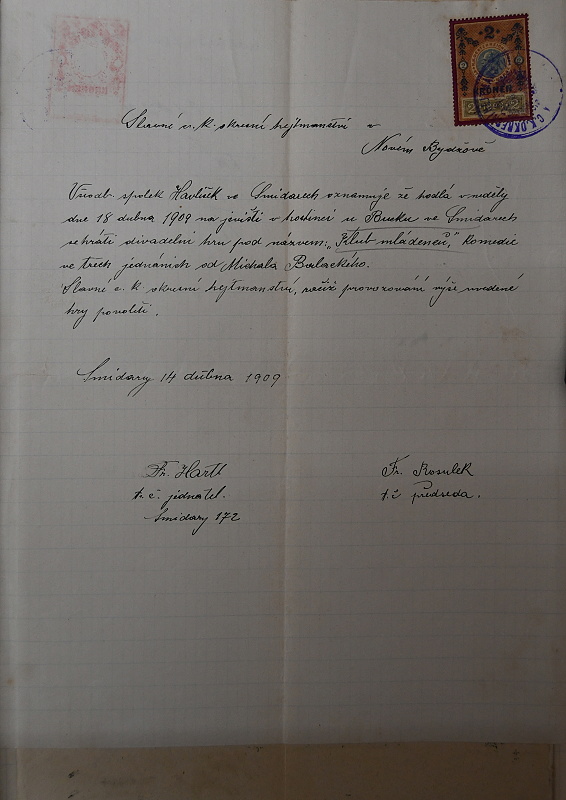 2
KRONEN
C.K.OKRES
Slavné c. k. okresní hejtmanství v
Novém Bydžově
Vzděl. spolek Havlíček ve Smidarech oznamuje že hodlá v neděly
dne 18 dubna 1909 na jevišti v hostinci u Bucku ve Smidarech
sehráti divadelní hru pod názvem: „Klub mládenců," komedie
ve třech jednáních od Michala Baluckého.
Slavné c. k okresní hejtmanství, račiž provozování výše uvedené
hry povoliti.
Smidary 14 dubna 1909
Fr. Hartl
t. č. jednatel.
Smidary 172
Fr. Kosulek
t. č předseda.